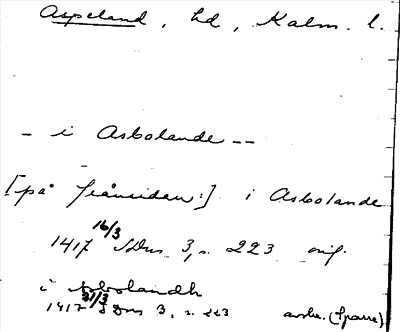 Aspeland, hd, Kalm. l.
- i Asbolande --
[på frånsidan:] i Asbolande
1417 16/3 SDns 3, s. 223 orig.
i Asbolandh
1417 31/3 SDns 3, s. 223 avskr. (Sparre)